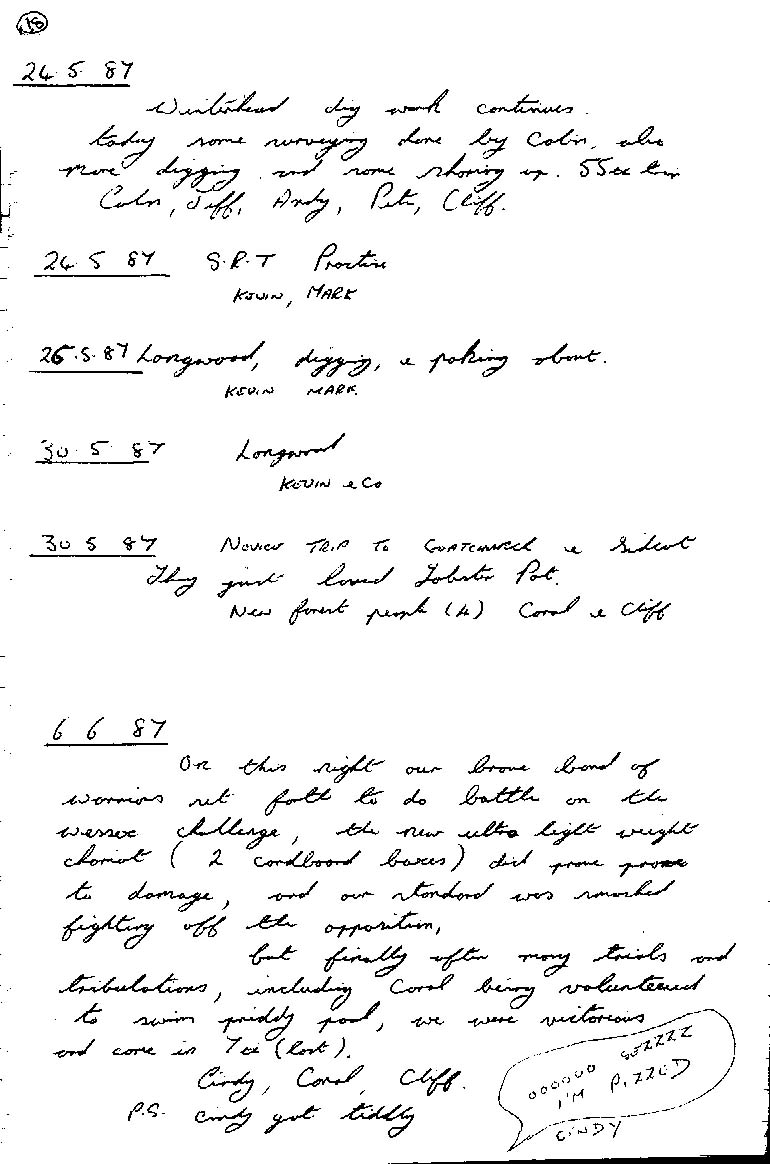 18
24.5.87
Winterhead dig work continues.
today some surveying done by Colin, also
more digging and some shoring up.
Colin, Jeff, Andy, Pete, Cliff.
24.5 87 S.R.T Practise
KEVIN, MARK
26.5.87 Longwood, digging, & poking about.
KEVIN MARK.
30.5 87 Longwood
KEVIN & Co
30 5 87 NOVICE TRIP TO GOATCHURCH & Sidcot
They just loved Lobster Pot.
New forest people (4) Coral & Cliff
6 6 87
On this night our brave band of
warriors set foth to do battle on the
wessex challenge, the new ultra light weight
chariot (2 cardboard boxes) did prove prone
to damage, and our standard was smashed
fighting off the opposition,
but finally after many trials and
tribulations, including Coral being volunteered
to swim priddy pool, we were victorious
and came in 7th (last).
Cindy, Coral, Cliff.
P.S. Cindy got tiddly
OOOOOO
I'M PIZZED
CINDY